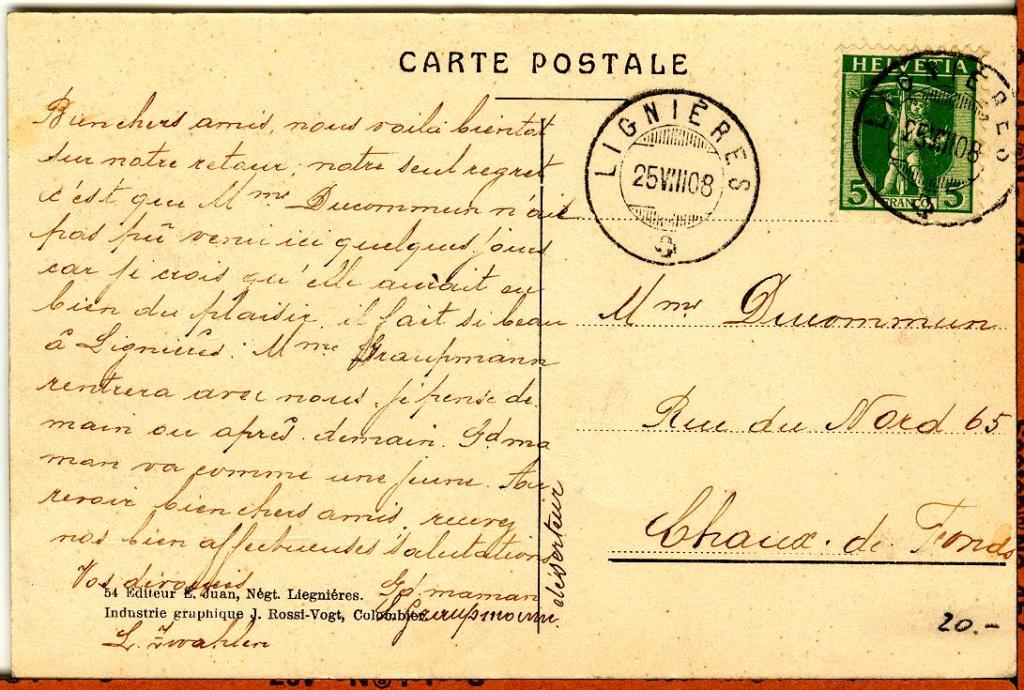 CARTE POSTALE
Bien chers amis, nous voilà bientôt
sur notre retour, notre seul regret
c'est que Mme Ducommun n'ait
pas pû venir ici quelques jours
car je crois qu'elle aurait eu
bien du plaisir, il fait si beau
à Lignières. Mme Graupmann
rentrera avec nous, je pense de
main ou après demain. Gd ma
man va comme une jeune. Au
revoir bien chers amis, recevez
nos bien affectueuses salutations
Vos dévoués Gd maman
Graupmann
L. Zwahlen
54 Editeur E. Juan, Négt. Liegniéres.
Industrie graphique J. Rossi-Vogt, Colombier.
déserteur
LIGNIÈRES
25.VIII.08
HELVETIA
5 FRANCO 5
LIGNIÈRES
25.VIII.08
Mme Ducommun
Rue du Nord 65
Chaux-de-Fonds
20.-